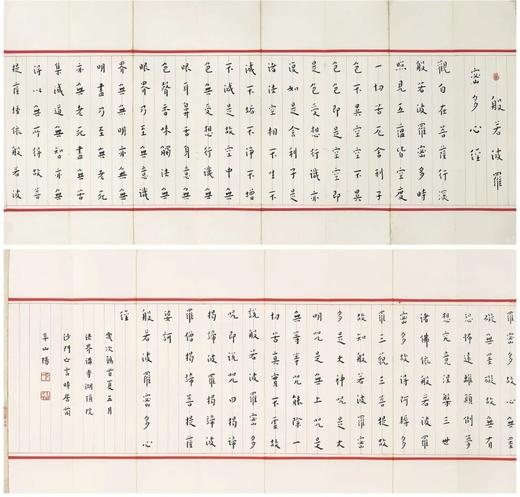 般若波羅
蜜多心經
觀自在菩薩行深
般若波羅蜜多時
照見五蘊皆空度
一切苦厄舍利子
色不異空空不異
色色即是空空即
是色受想行識亦
復如是舍利子是
諸法空相不生不
滅不垢不淨不增
不減是故空中無
色無受想行識無
眼耳鼻舌身意無
色聲香味觸法無
眼界乃至無意識
界無無明亦無無
明盡乃至無老死
亦無老死盡無苦
集滅道無智亦無
得以無所得故菩
提薩埵依般若波
羅蜜多故心無罣
礙無罣礙故無有
恐怖遠離顛倒夢
想究竟涅槃三世
諸佛依般若波羅
蜜多故得阿耨多
羅三藐三菩提
故知般若波羅蜜
多是大神咒是大
明咒是無上咒是
無等等咒能除一
切苦真實不虛故
說般若波羅蜜多
咒即說咒曰揭諦
揭諦波羅揭諦波
羅僧揭諦菩提薩
婆訶
般若波羅蜜多心
經
歲次鶉首夏五月
法界講寺
沙門
阜山陽